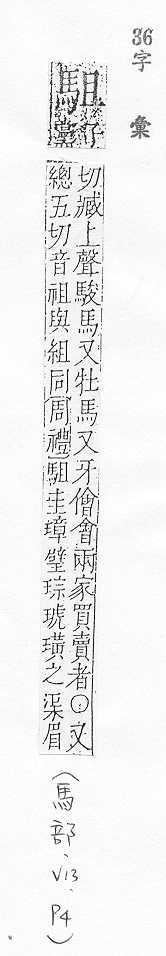 36字彙
駔子黨
切臧上聲駿馬又牡馬又牙儈會兩家買賣者○又
總五切音祖與組同周禮駔圭璋璧琮琥璜之渠眉
(馬部、V13、P4)